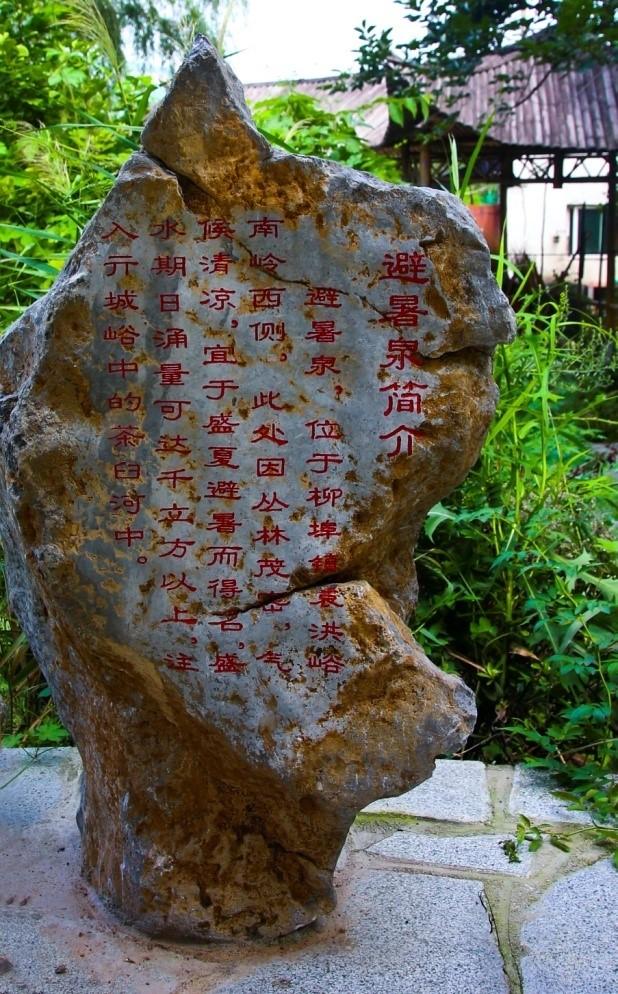 避暑泉简介
避暑泉，位于柳埠镇袁洪峪
南岭西侧。此处因丛林茂密，气
候清凉，宜于盛夏避暑而得名，盛
水期日涌量可达千立方以上，注
入亓城峪中的茶臼河中。